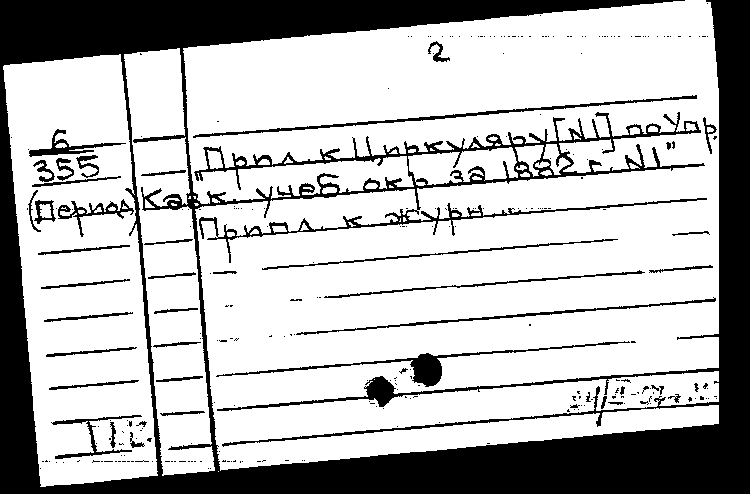 2
Б
355
(Период)
"Прил. к Циркуляру [N1] по Упр.
Кавк. учеб. окр. за 1882 г. N1"
Прилл. к журн...